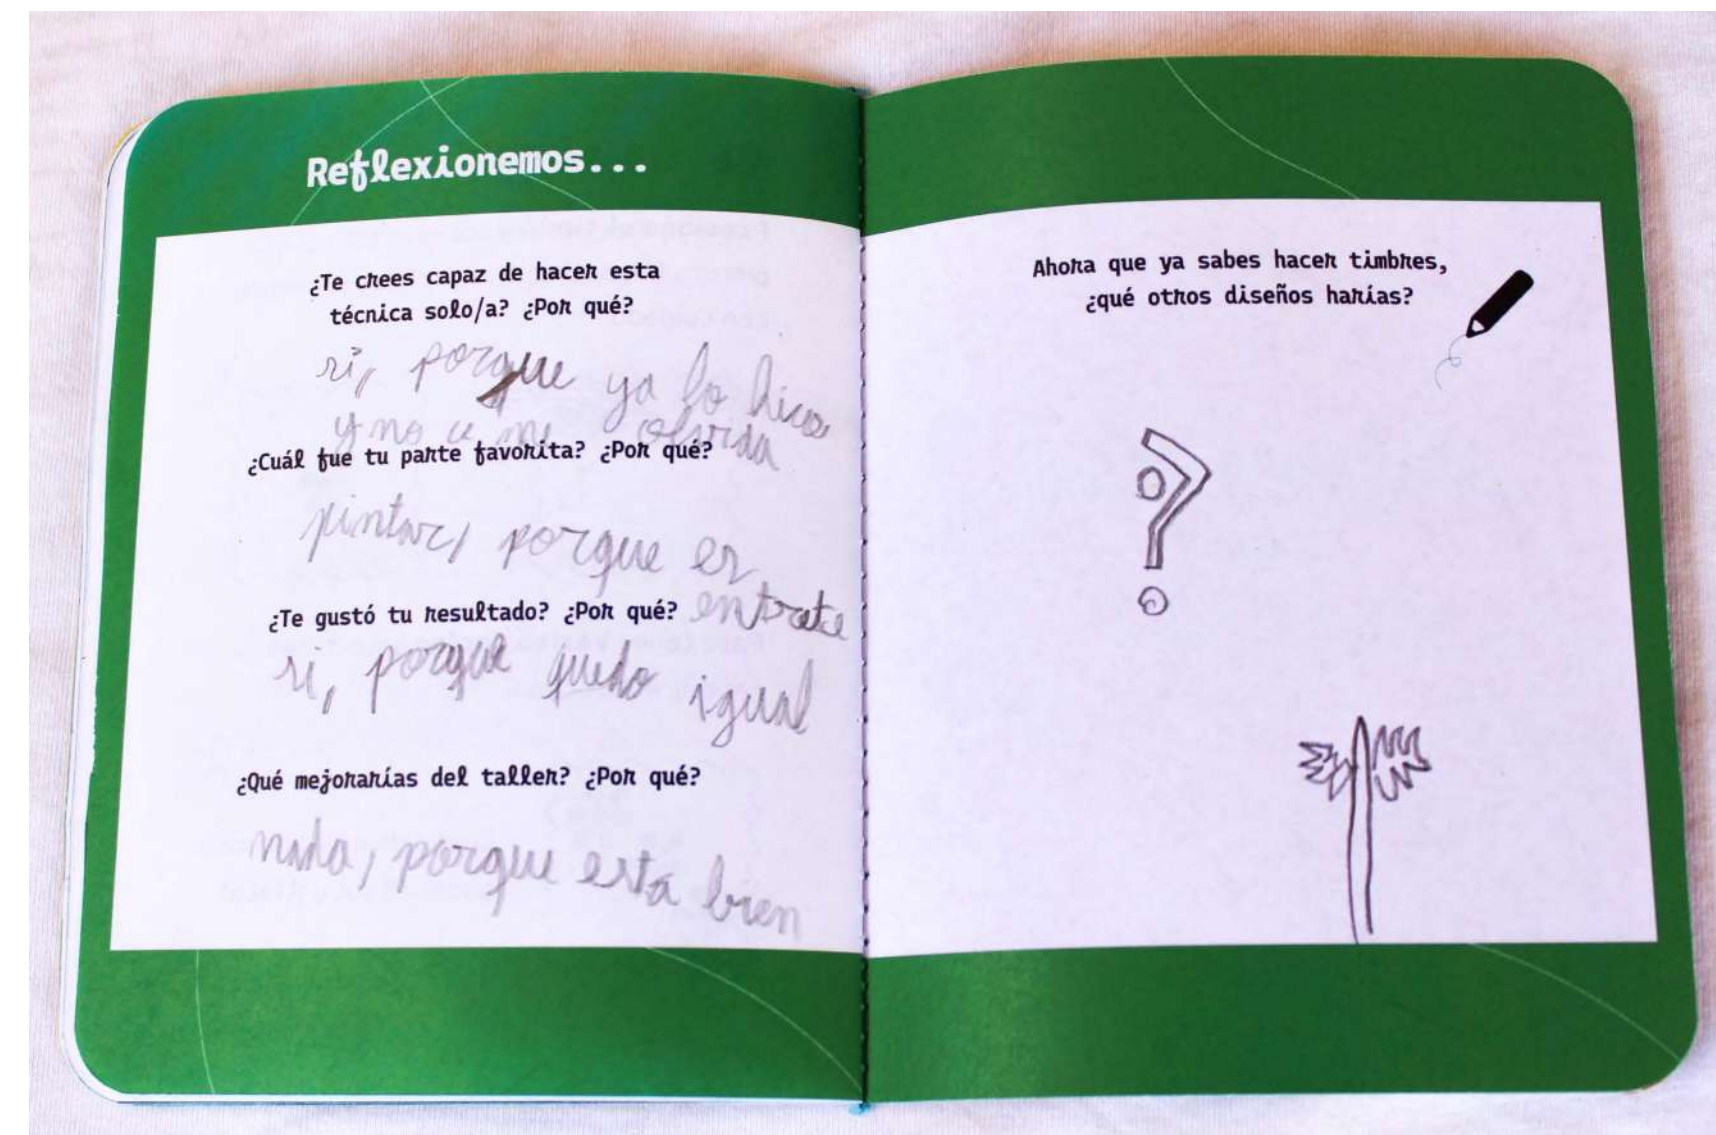 Reflexionemos...
¿Te crees capaz de hacer esta
técnica solo/a? ¿Por qué?
si, porque ya lo hice
y no ce me olvida
¿Cuál fue tu parte favorita? ¿Por qué?
pintar, porque es
entrete
¿Te gustó tu resultado? ¿Por qué?
si, porque quedo igual
¿Qué mejorarías del taller? ¿Por qué?
nada, porque está bien
Ahora que ya sabes hacer timbres,
¿qué otros diseños harías?